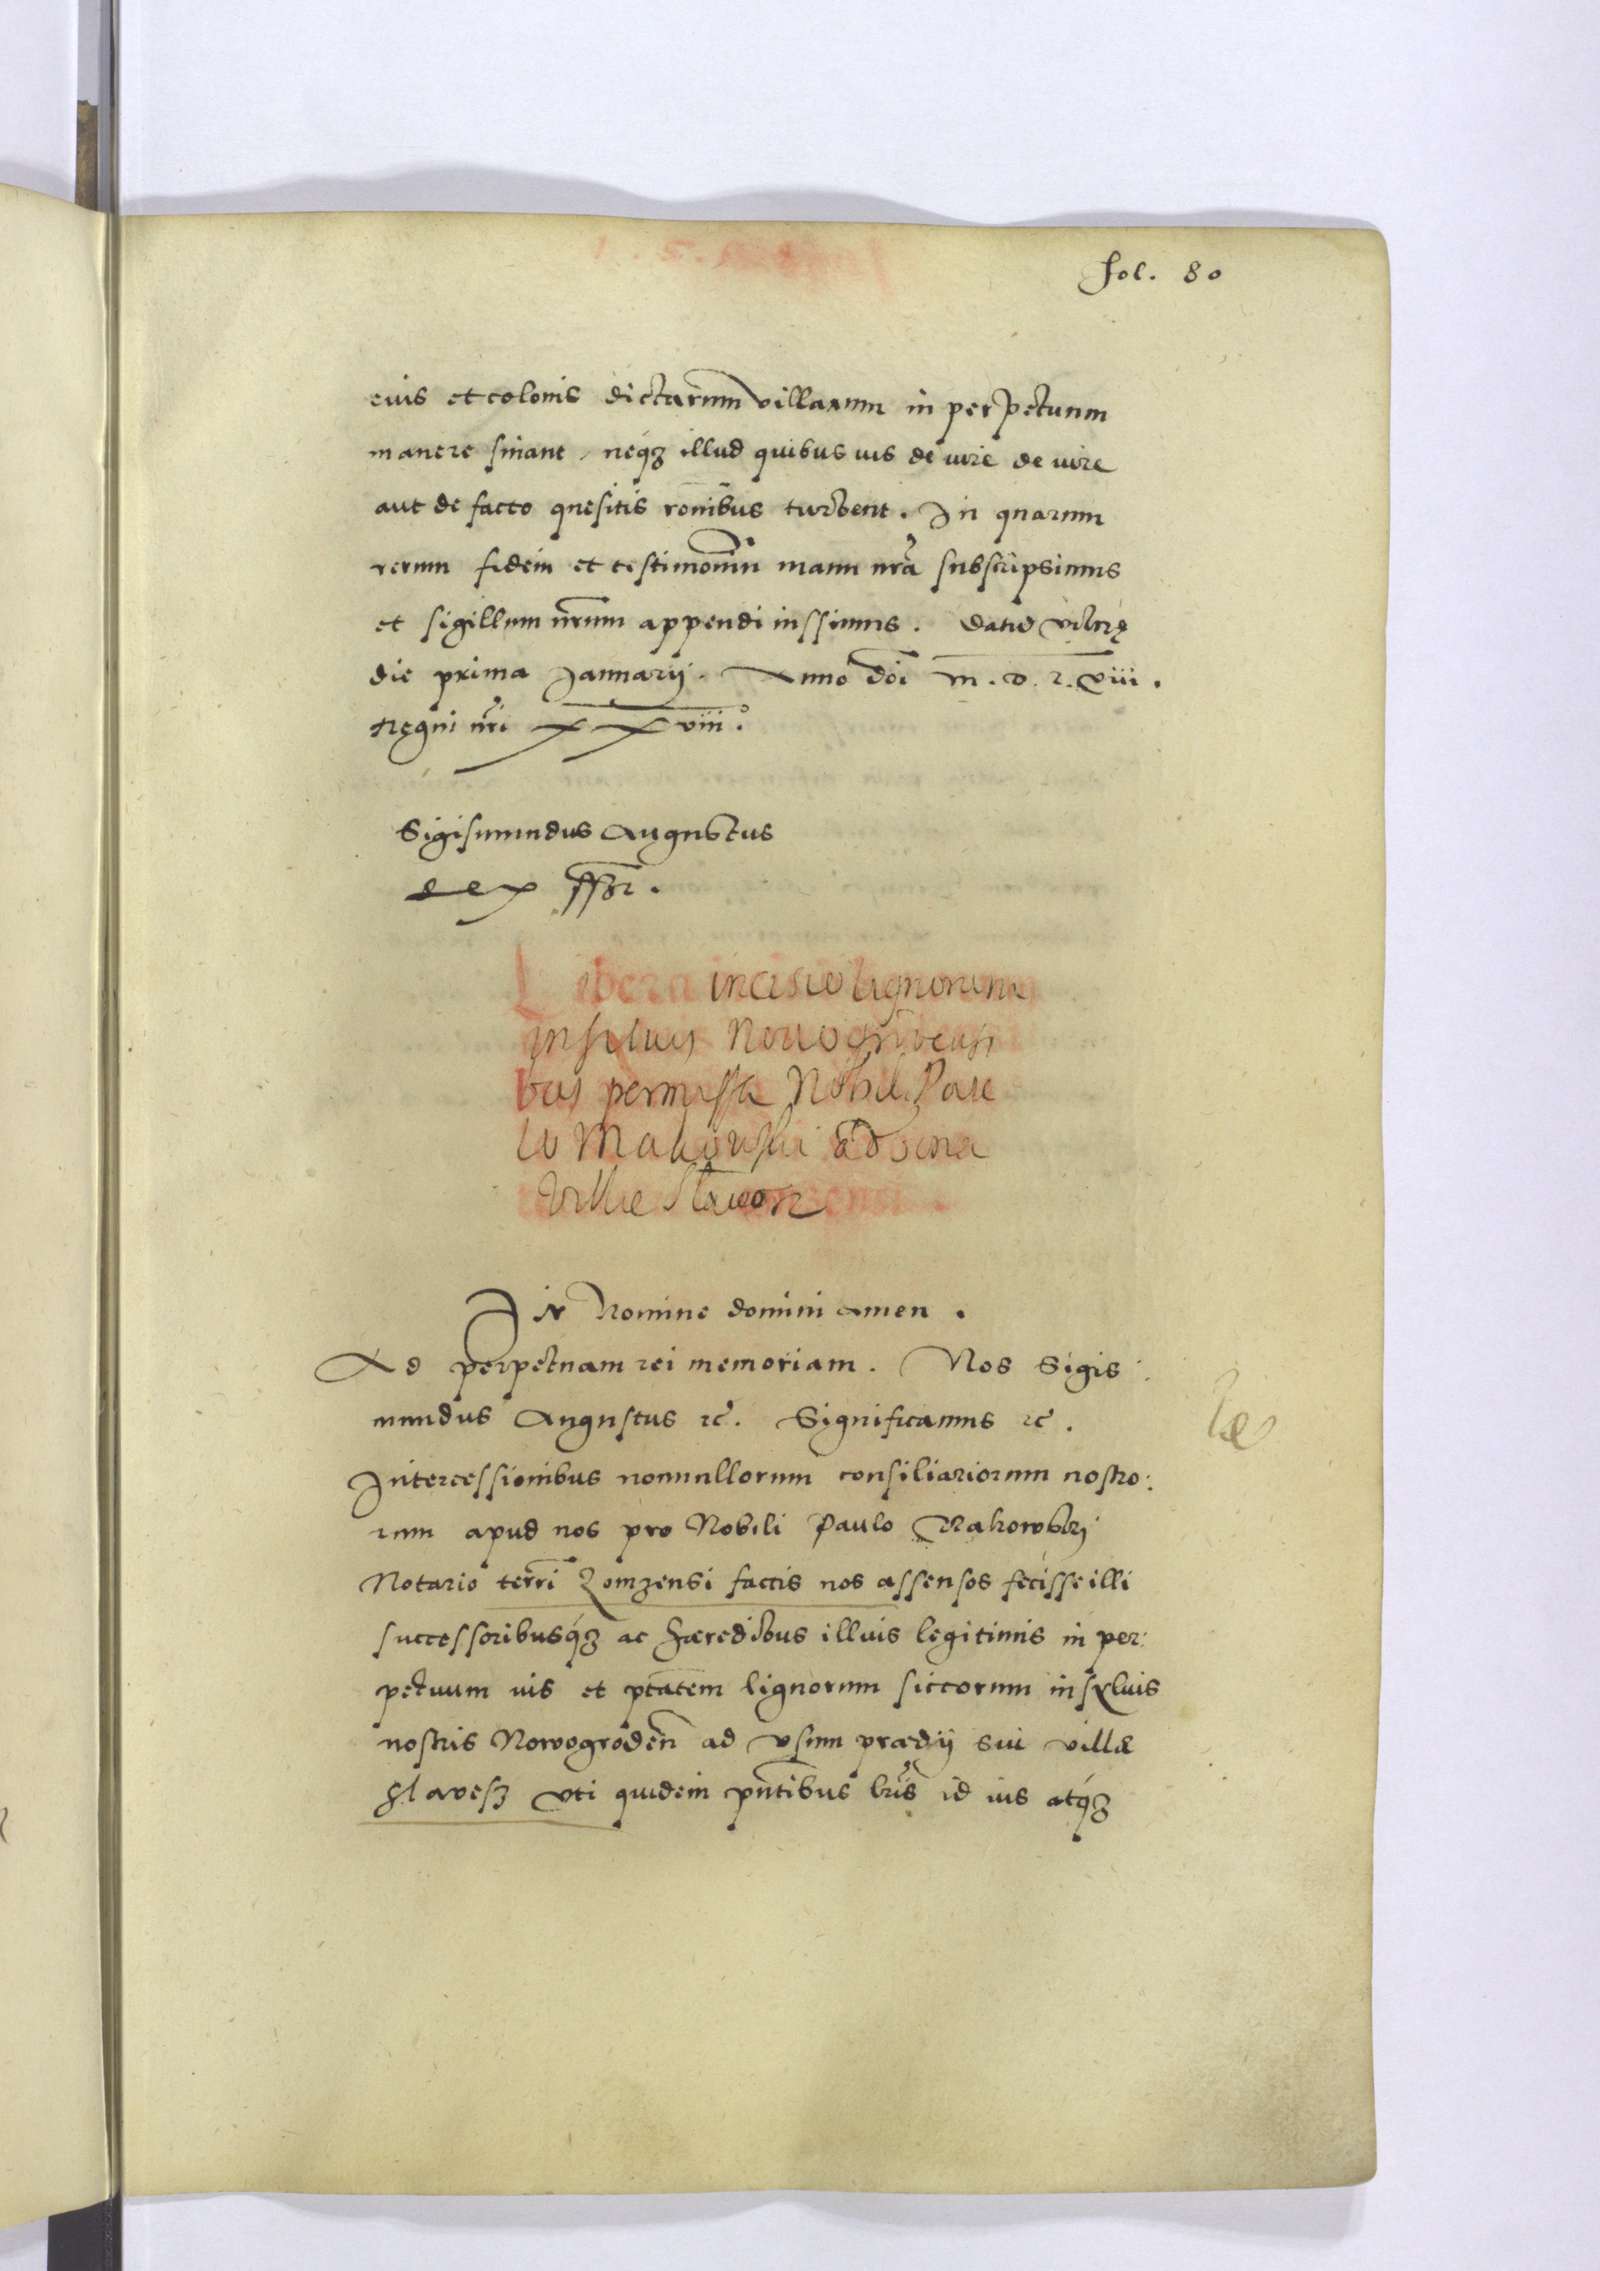 fol. 80
eius et colonis dictarum villarum in perpetuum
manere sinant, neqz illud quibus vis de iure de iure
aut de facto quesitis ronibus turbent. In quarum
rerum fidem et testimonium manu nra subscripsimus
et sigillum nrum appendi iussimus. Datu Vilnę
die prima Januarij. Anno doi M.D.L.VIII.
Regni nri XXVIII.
Sigismundus Augustus
Rex sszt.
Libera incisio lignorum
in siluis Nouogrodensi
bus permissa Nobili Pau
lo Makowski ad
villae
In Nomine domini amen.
Ad perpetuam rei memoriam. Nos Sigis:
mundus Augustus etc. Significamus etc.
Intercessionibus nonnullorum consiliariorum nostro:
rum apud nos pro Nobili Paulo Makowskj
Notario terri Lomzensi factis nos assensos fecisse illi
successoribusqz ac hæredibus illius legitimis in per:
petuum ius et ptatem lignorum siccorum in sylvis
nostris Nowogroden ad vsum prædij sui villæ
Slavesz vti quidem pntibus lris id ius atqz